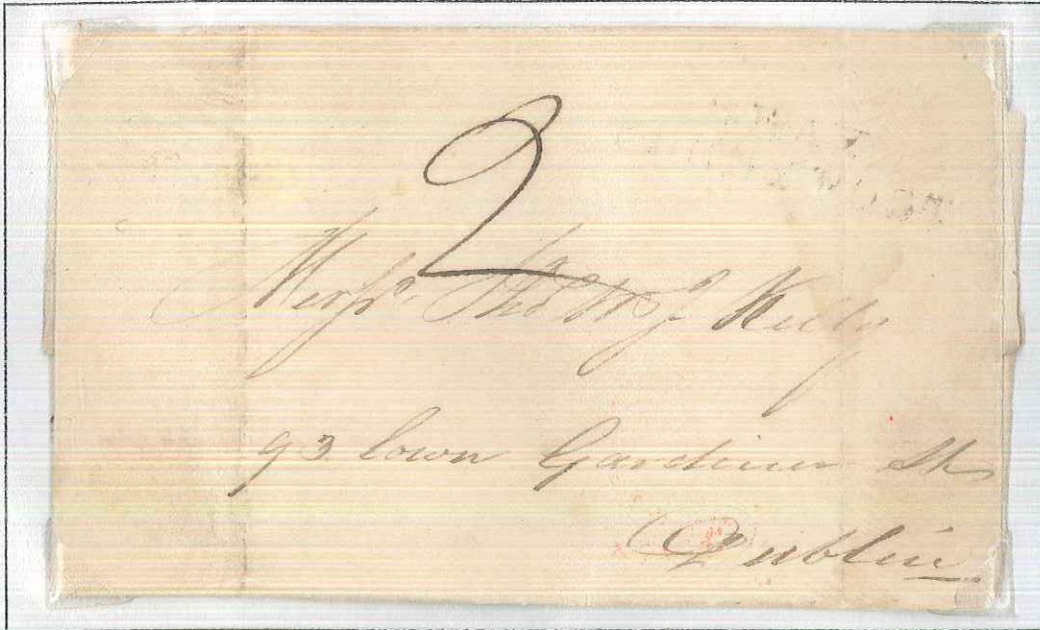 2
Messrs. Thos W J Kelly
93 lower Gardiner St
Dublin